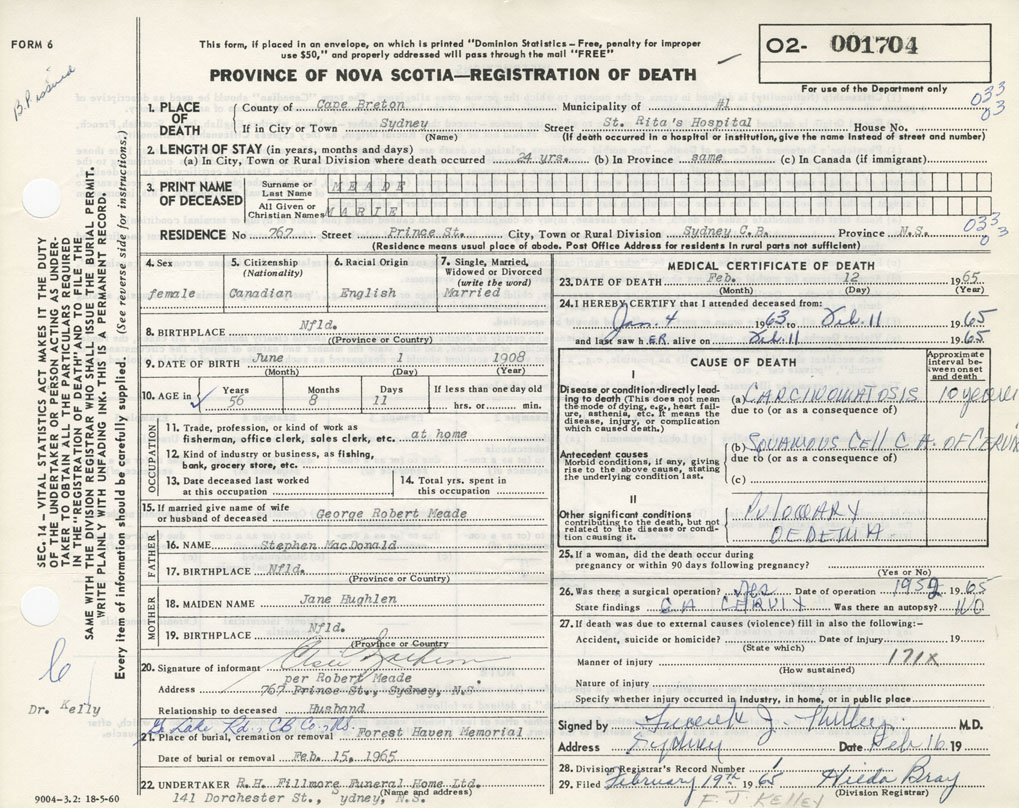 FORM 6
B.P. issued
This form, if placed in an envelope, on which is printed "Dominion Statistics – Free, penalty for improper
use $50," and properly addressed will pass through the mail "FREE"
PROVINCE OF NOVA SCOTIA—REGISTRATION OF DEATH
02- 001704
For use of the Department only
033
03
1. PLACE OF DEATH County of Cape Breton Municipality of #1
If in City or Town Sydney (Name) Street St. Rita's Hospital House No.
(If death occurred in a hospital or institution, give the name instead of street and number)
2. LENGTH OF STAY (in years, months and days)
(a) In City, Town or Rural Division where death occurred 24 yrs. (b) In Province same (c) In Canada (if immigrant)
3. PRINT NAME OF DECEASED Surname or Last Name MEADE
All Given or Christian Names MARIE
033
03
RESIDENCE No 767 Street Prince St. City, Town or Rural Division Sydney C.B. Province N.S.
(Residence means usual place of abode. Post Office Address for residents in rural parts not sufficient)
SEC. 14 – VITAL STATISTICS ACT MAKES IT THE DUTY
OF THE UNDERTAKER OR PERSON ACTING AS UNDER-
TAKER TO OBTAIN ALL THE PARTICULARS REQUIRED
IN THE "REGISTRATION OF DEATH" AND TO FILE THE
SAME WITH THE DIVISION REGISTRAR WHO SHALL ISSUE THE BURIAL PERMIT.
WRITE PLAINLY WITH UNFADING INK. THIS IS A PERMANENT RECORD.
Every item of information should be carefully supplied. (See reverse side for instructions.)
4. Sex female
5. Citizenship (Nationality) Canadian
6. Racial Origin English
7. Single, Married, Widowed or Divorced (write the word) Married
8. BIRTHPLACE Nfld.
((Province or Country)
9. DATE OF BIRTH June 1 1908
(Month) (Day) (Year)
10. AGE in Years 56 Months 8 Days 11 If less than one day old hrs. or min.
OCCUPATION
11. Trade, profession, or kind of work as
fisherman, office clerk, sales clerk, etc. at home
12. Kind of industry or business, as fishing,
bank, grocery store, etc.
13. Date deceased last worked at this occupation
14. Total yrs. spent in this occupation
15. If married give name of wife
or husband of deceased George Robert Meade
FATHER
16. NAME Stephen MacDonald
17. BIRTHPLACE Nfld.
(Province or Country)
MOTHER
18. MAIDEN NAME Jane Hughlen
19. BIRTHPLACE Nfld.
(Province or Country
20. Signature of informant
per Robert Meade
Address 767 Prince St., Sydney, N.S.
Relationship to deceased Husband
Lake Rd., C.B. Co., N.S.
21. Place of burial, cremation or removal Forest Haven Memorial
Date of burial or removal Feb. 15, 1965
22. UNDERTAKER R.H. Fillmore Funeral Home Ltd.
(Name and address)
141 Dorchester St., ydney, N.S.
6
Dr. Kelly
9004-3.2: 18-5-60
MEDICAL CERTIFICATE OF DEATH
23. DATE OF DEATH Feb. 12 1965
(Month) (Day) (Year)
24. I HEREBY CERTIFY that I attended deceased from:
Jan. 4 1963 to Feb. 11 1965
and last saw h ER alive on Feb. 11 1965
CAUSE OF DEATH
Approximate interval between onset and death
I
Disease or condition-directly lead-
ing to death (This does not mean
the mode of dying, e.g., heart fail-
ure, asthenia, etc. It means the
disease, injury, or complication
which caused death.)
(a) CARCINOMATOSIS 10 years
due to (or as a consequence of)
Antecedent causes
Morbid conditions, if any, giving
rise to the above cause, stating
the underlying condition last.
(b) SQUAMOUS CELL C.A. OF CERVIX
due to (or as a consequence of)
(c)
II
Other significant conditions
contributing to the death, but not
related to the disease or condi-
tion causing it.
PULOMARY
OEDEMA
25. If a woman, did the death occur during
pregnancy or within 90 days following pregnancy?
(Yes or No)
26. Was there a surgical operation? yes Date of operation 1952 1965
State findings CA CERVIX Was there an autopsy? NO
27. If death was due to external causes (violence) fill in also the following:-
Accident, suicide or homicide? Date of injury 19
(State which)
Manner of injury 171x
(How sustained)
Nature of injury
Specify whether injury occurred in industry, in home, or in public place
Signed by J. M.D.
Address Sydney Date Feb 16 19
28. Division Registrar's Record Number
29. Filed February 19th 1965 Hilda Bray
(Division Registrar)
F. J. KELLEY